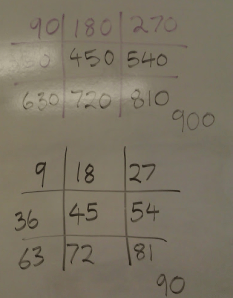 90 180 270
360 450 540
630 720 810
900
9 18 27
36 45 54
63 72 81
90